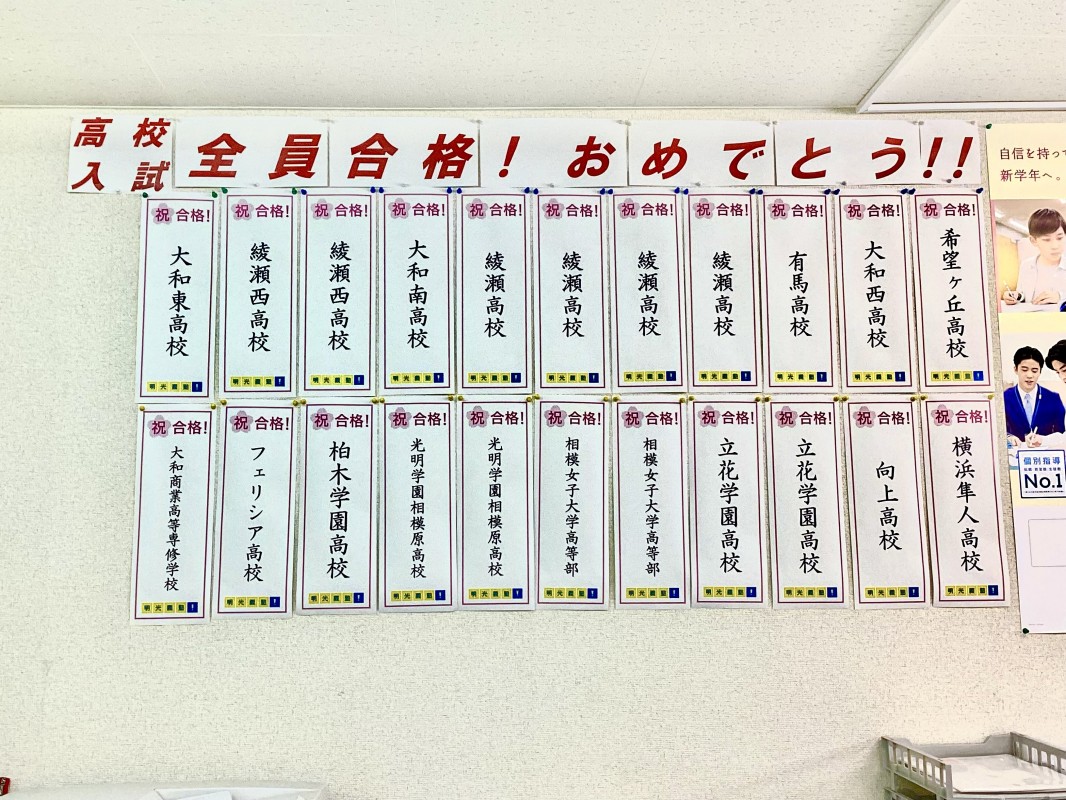 高校
入試
全員合格!おめでとう!!
祝 合格!
希望ヶ丘高校
明光義塾
祝 合格!
大和西高校
明光義塾
祝 合格!
有馬高校
明光義塾
祝 合格!
綾瀬高校
明光義塾
祝 合格!
綾瀬高校
明光義塾
祝 合格!
綾瀬高校
明光義塾
祝 合格!
綾瀬高校
明光義塾
祝 合格!
大和南高校
明光義塾
祝 合格!
綾瀬西高校
明光義塾
祝 合格!
綾瀬西高校
明光義塾
祝 合格!
大和東高校
明光義塾
祝 合格!
横浜隼人高校
明光義塾
祝 合格!
向上高校
明光義塾
祝 合格!
立花学園高校
明光義塾
祝 合格!
立花学園高校
明光義塾
祝 合格!
相模女子大学高等部
明光義塾
祝 合格!
相模女子大学高等部
明光義塾
祝 合格!
光明学園相模原高校
明光義塾
祝 合格!
光明学園相模原高校
明光義塾
祝 合格!
柏木学園高校
明光義塾
祝 合格!
フェリシア高校
明光義塾
祝 合格!
大和商業高等専修学校
明光義塾
自信を持って
新学年へ。
個別指導
No.1